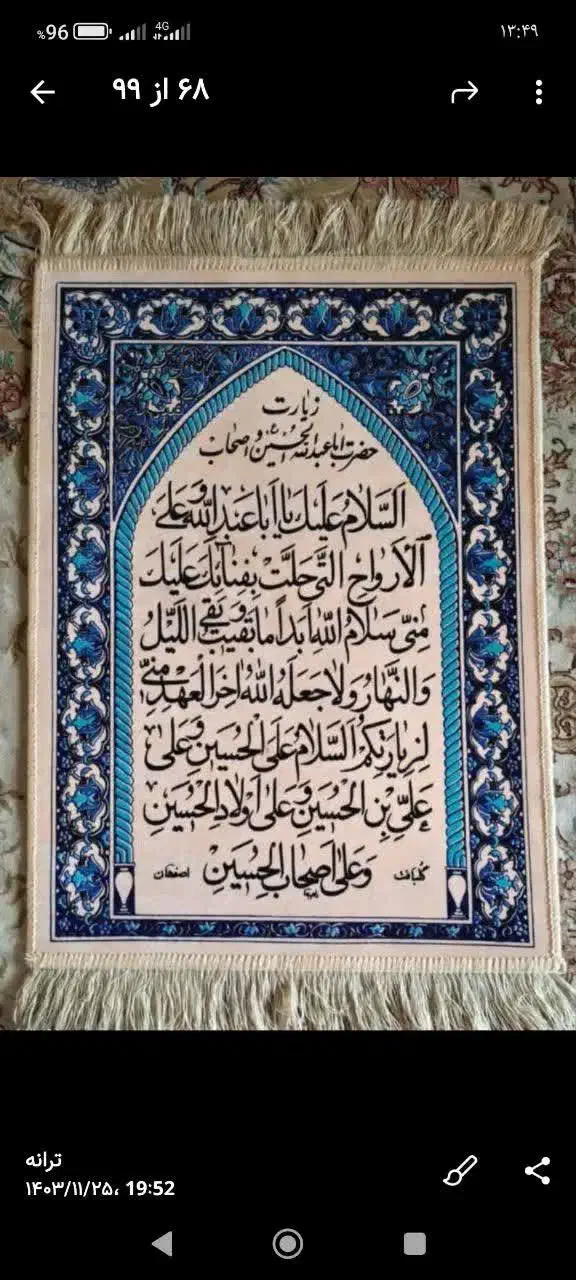 %96 4G ۱۳:۴۹
۶۸ از ۹۹
زیارت
حضرت اباعبدالله الحسین (ع) و اصحاب
اَلسَّلامُ عَلَیْكَ یا اَبا عَبْدِاللهِ وَ عَلَی
الْاَرْواحِ الَّتی حَلَّتْ بِفِنائِكَ عَلَیْكَ
مِنّی سَلامُ اللهِ اَبَداً ما بَقیتُ وَ بَقِیَ اللَّیْلُ
وَالنَّهارُ وَلا جَعَلَهُ اللهُ اخِرَ الْعَهْدِ مِنّی
لِزِیارَتِکُمْ اَلسَّلامُ عَلَی الْحُسَیْنِ وَ عَلی
عَلِیِّ بْنِ الْحُسَیْنِ وَ عَلی اَوْلادِ الْحُسَیْنِ
وَ عَلی اَصْحابِ الْحُسَیْنِ
گلبافت اصفهان
ترانه
۱۴۰۳/۱۱/۲۵، 19:52